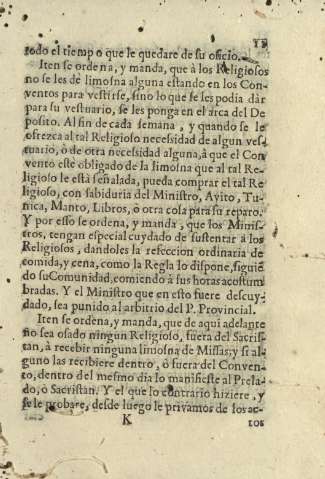 todo el tiempo que le quedare de su oficio.
Iten se ordena, y manda, que à los Religiosos
no se les dè limosna alguna estando en los Con-
ventos para vestirse, sino lo que se les podia dàr
para su vestuario, se les ponga en el arca del De
posito. Al fin de cada semana, y quando se le
ofrezca al tal Religioso necessidad de algun ves-
tuario, ò de otra necessidad alguna, à que el Con
vento este obligado de la limosna que al tal Re-
ligioso le està señalada, pueda comprar el tal Re
ligioso, con sabiduria del Ministro, Avito, Tu-
nica, Manto, Libros, ò otra cosa para su reparo.
Y por esso se ordena, y manda, que los Minis-
tros, tengan especial cuydado de sustentar à los
Religiosos, dandoles la refeccion ordinaria de
comida, y cena, como la Regla lo dispone, siguié
do su Comunidad, comiendo à sus horas acostum
bradas. Y el Ministro que en esto fuere descuy-
dado, sea punido al arbitrio del P. Provincial.
Iten se ordena, y manda, que de aqui adelante
no sea osado ningun Religioso, fuera del Sacris-
tan, à recibir ninguna limosna de Missas; y si al-
guno las recibiere dentro, ò fuera del Conven-
to, dentro del mesmo dia lo manifieste al Prela-
do, ò Sacristan. Y el que lo contrario hiziere, y
se le probare, desde luego le privamos de los ac-
K
tos